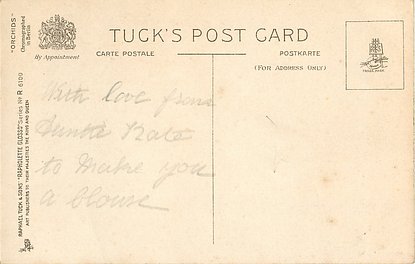 TUCK'S POST CARD
CARTE POSTALE
POSTKARTE
(FOR ADDRESS ONLY)
By Appointment
TRADE MARK
"ORCHIDS"
Chromographed
in Berlin
RAPHAEL TUCK & SONS' "RAPHOLETTE GLOSSO" Series No R 6100
ART PUBLISHERS TO THEIR MAJESTIES THE KING AND QUEEN
With love from
Auntie Kate
to make you
a blouse